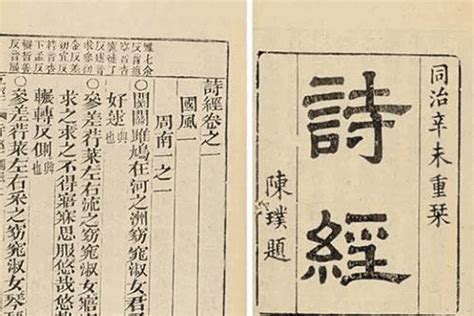 同治辛未重栞
詩經
陳璞題
詩經卷之一
國風一
周南一之一
○關關雎鳩在河之洲窈窕淑女君
好逑興也
○參差荇菜左右流之窈窕淑女寤
求之求之不得寤寐思服悠哉悠
輾轉反側興也
○參差荇菜左右采之窈窕淑女琴